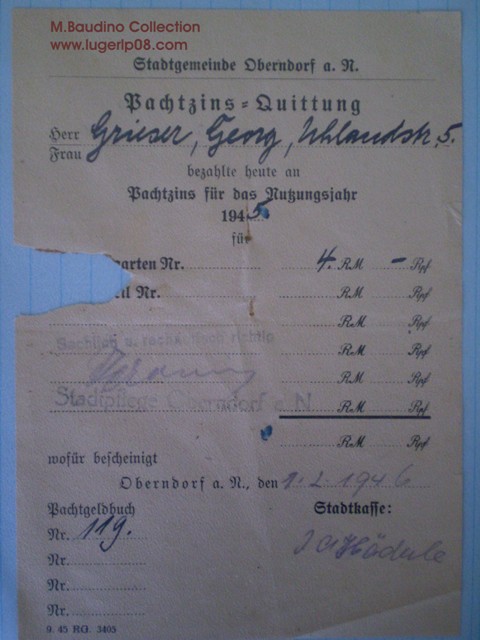 M.Baudino Collection
www.lugerlp08.com
Stadtgemeinde Oberndorf a. N.
Pachtzins=Quittung
Herr Grieser, Georg, Uhlandstr. 5.
Frau
bezahlte heute an
Pachtzins für das Nutzungsjahr
1945
für
garten Nr. 4. RM - Rpf
il Nr. RM Rpf
RM Rpf
Sachlich u. rechnerisch richtig RM Rpf
RM Rpf
Stadtpflege Oberndorf a N RM Rpf
RM Rpf
wofür bescheinigt
Oberndorf a. N., den 1.2.1946
Pachtgeldbuch Stadtkasse:
Nr. 119.
Nr.
Nr.
Nr.
9. 45 RG. 3405